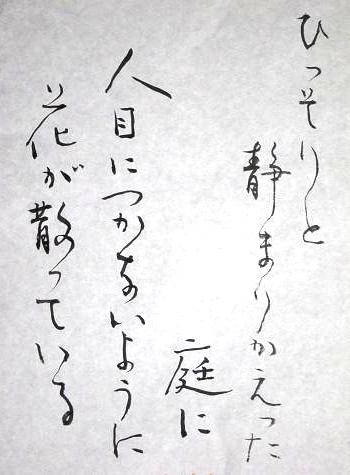 ひっそりと
静まりかえった
庭に
人目につかないように
花が散っている